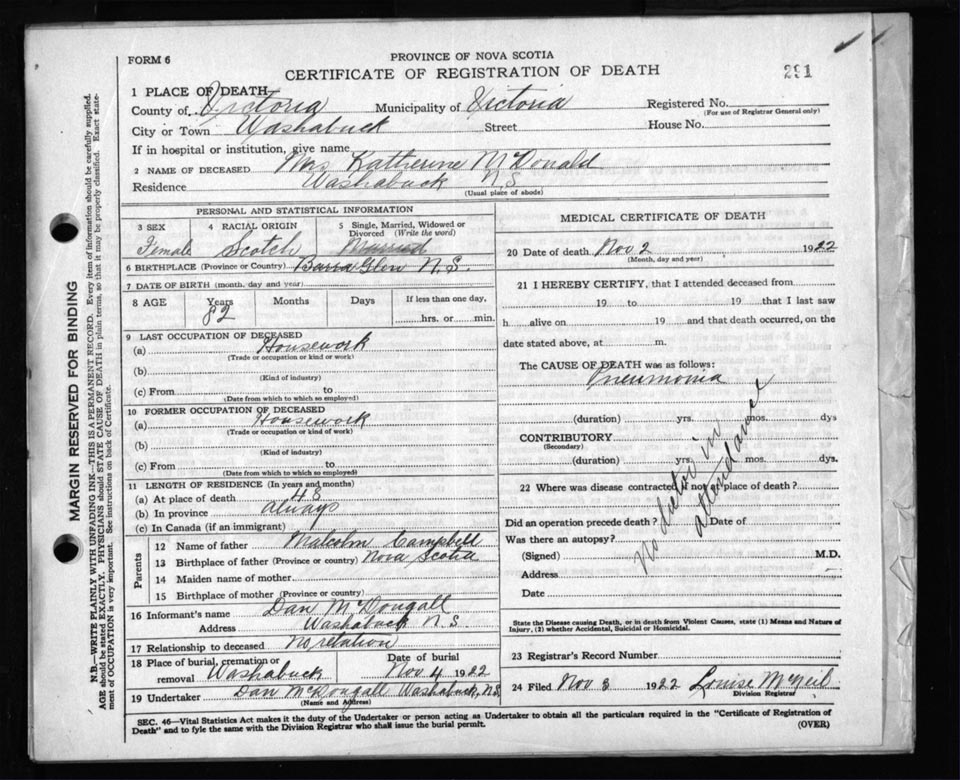 FORM 6
PROVINCE OF NOVA SCOTIA
CERTIFICATE OF REGISTRATION OF DEATH
291
1 PLACE OF DEATH
County of Victoria Municipality of Victoria Registered No.
(For use of Registrar General only)
City or Town Washabuck Street House No.
If in hospital or institution, give name
2 NAME OF DECEASED Mrs Katherine McDonald
Residence Washabuck N.S
(Usual place of abode)
PERSONAL AND STATISTICAL INFORMATION
3 SEX 4 RACIAL ORIGIN 5 Single, Married, Widowed or Divorced (Write the word)
Female Scotch Married
6 BIRTHPLACE (Province or Country) Barra Glen N.S.
7 DATE OF BIRTH (month, day and year)
8 AGE Years Months Days If less than one day,
82 hrs. or min.
9 LAST OCCUPATION OF DECEASED
(a) Housework
(Trade or occupation or kind or work)
(b)
(Kind of industry)
(c) From to
(Date from which to which so employed)
10 FORMER OCCUPATION OF DECEASED
(a) Housework
(Trade or occupation or kind of work)
(b)
(Kind of industry)
(c) From to
(Date from which to which so employed)
11 LENGTH OF RESIDENCE (In years and months)
(a) At place of death 48
(b) In province always
(c) In Canada (if an immigrant)
Parents
12 Name of father Malcolm Campbell
13 Birthplace of father (Province or country) Nova Scotia
14 Maiden name of mother
15 Birthplace of mother (Province or country)
16 Informant's name Dan McDougall
Address Washabuck N.S.
17 Relationship to deceased No relation
18 Place of burial, cremation or removal Washabuck Date of burial Nov 4 1922
19 Undertaker Dan McDougall Washabuck, N.S
(Name and Address)
MEDICAL CERTIFICATE OF DEATH
20 Date of death Nov 2 1922
(Month, day and year)
21 I HEREBY CERTIFY, that I attended deceased from
19 to 19 that I last saw
h alive on 19 and that death occurred, on the
date stated above, at m.
The CAUSE OF DEATH was as follows:
Pneumonia
(duration) yrs. mos. dys
CONTRIBUTORY
(Secondary)
(duration) yrs. mos. dys.
22 Where was disease contracted if not at place of death?
Did an operation precede death? Date of
Was there an autopsy?
No doctor in attendance
(Signed) M.D.
Address
Date
State the Disease causing Death, or in death from Violent Causes, state (1) Means and Nature of
Injury, (2) whether Accidental, Suicidal or Homicidal.
23 Registrar's Record Number
24 Filed Nov 3 1922 Louise McNeil
Division Registrar
SEC. 46—Vital Statistics Act makes it the duty of the Undertaker or person acting as Undertaker to obtain all the particulars required in the "Certificate of Registration of
Death" and to fyle the same with the Division Registrar who shall issue the burial permit.
(OVER)
MARGIN RESERVED FOR BINDING
N.B.—WRITE PLAINLY WITH UNFADING INK—THIS IS A PERMANENT RECORD. Every item of information should be carefully supplied.
AGE should be stated EXACTLY. PHYSICIANS should STATE CAUSE OF DEATH in plain terms, so that it may be properly classified. Exact state-
ment of OCCUPATION is very important. See instructions on back of Certificate.